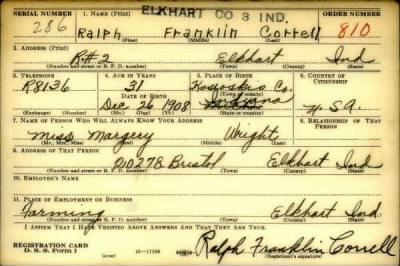 SERIAL NUMBER 1. NAME (Print) ELKHART CO 3 IND. ORDER NUMBER
286 Ralph Franklin Correll 810
(First) (Middle) (Last)
2. ADDRESS (Print)
R#2 Elkhart Ind
(Number and street or R. F. D. number) (Town) (County) (State)
3. TELEPHONE 4. AGE IN YEARS 5. PLACE OF BIRTH 6. COUNTRY OF CITIZENSHIP
R8136 31 Kosciosko Co.
DATE OF BIRTH (Town or county)
Dec 26 1908 U.S.A.
(Exchange) (Number) (Mo.) (Day) (Yr.) (State or country)
7. NAME OF PERSON WHO WILL ALWAYS KNOW YOUR ADDRESS 8. RELATIONSHIP OF THAT PERSON
Miss Margery Wright
(Mr., Mrs., Miss) (First) (Middle) (Last)
9. ADDRESS OF THAT PERSON
Bristol Elkhart Ind
(Number and street or R. F. D. number) (Town) (County) (State)
10. EMPLOYER'S NAME
11. PLACE OF EMPLOYMENT OR BUSINESS
Farming Elkhart Ind
(Number and street or R. F. D. number) (Town) (County) (State)
I AFFIRM THAT I HAVE VERIFIED ABOVE ANSWERS AND THAT THEY ARE TRUE.
REGISTRATION CARD Ralph Franklin Correll
D. S. S. Form 1 (over) 16-17105 (Registrant's signature)